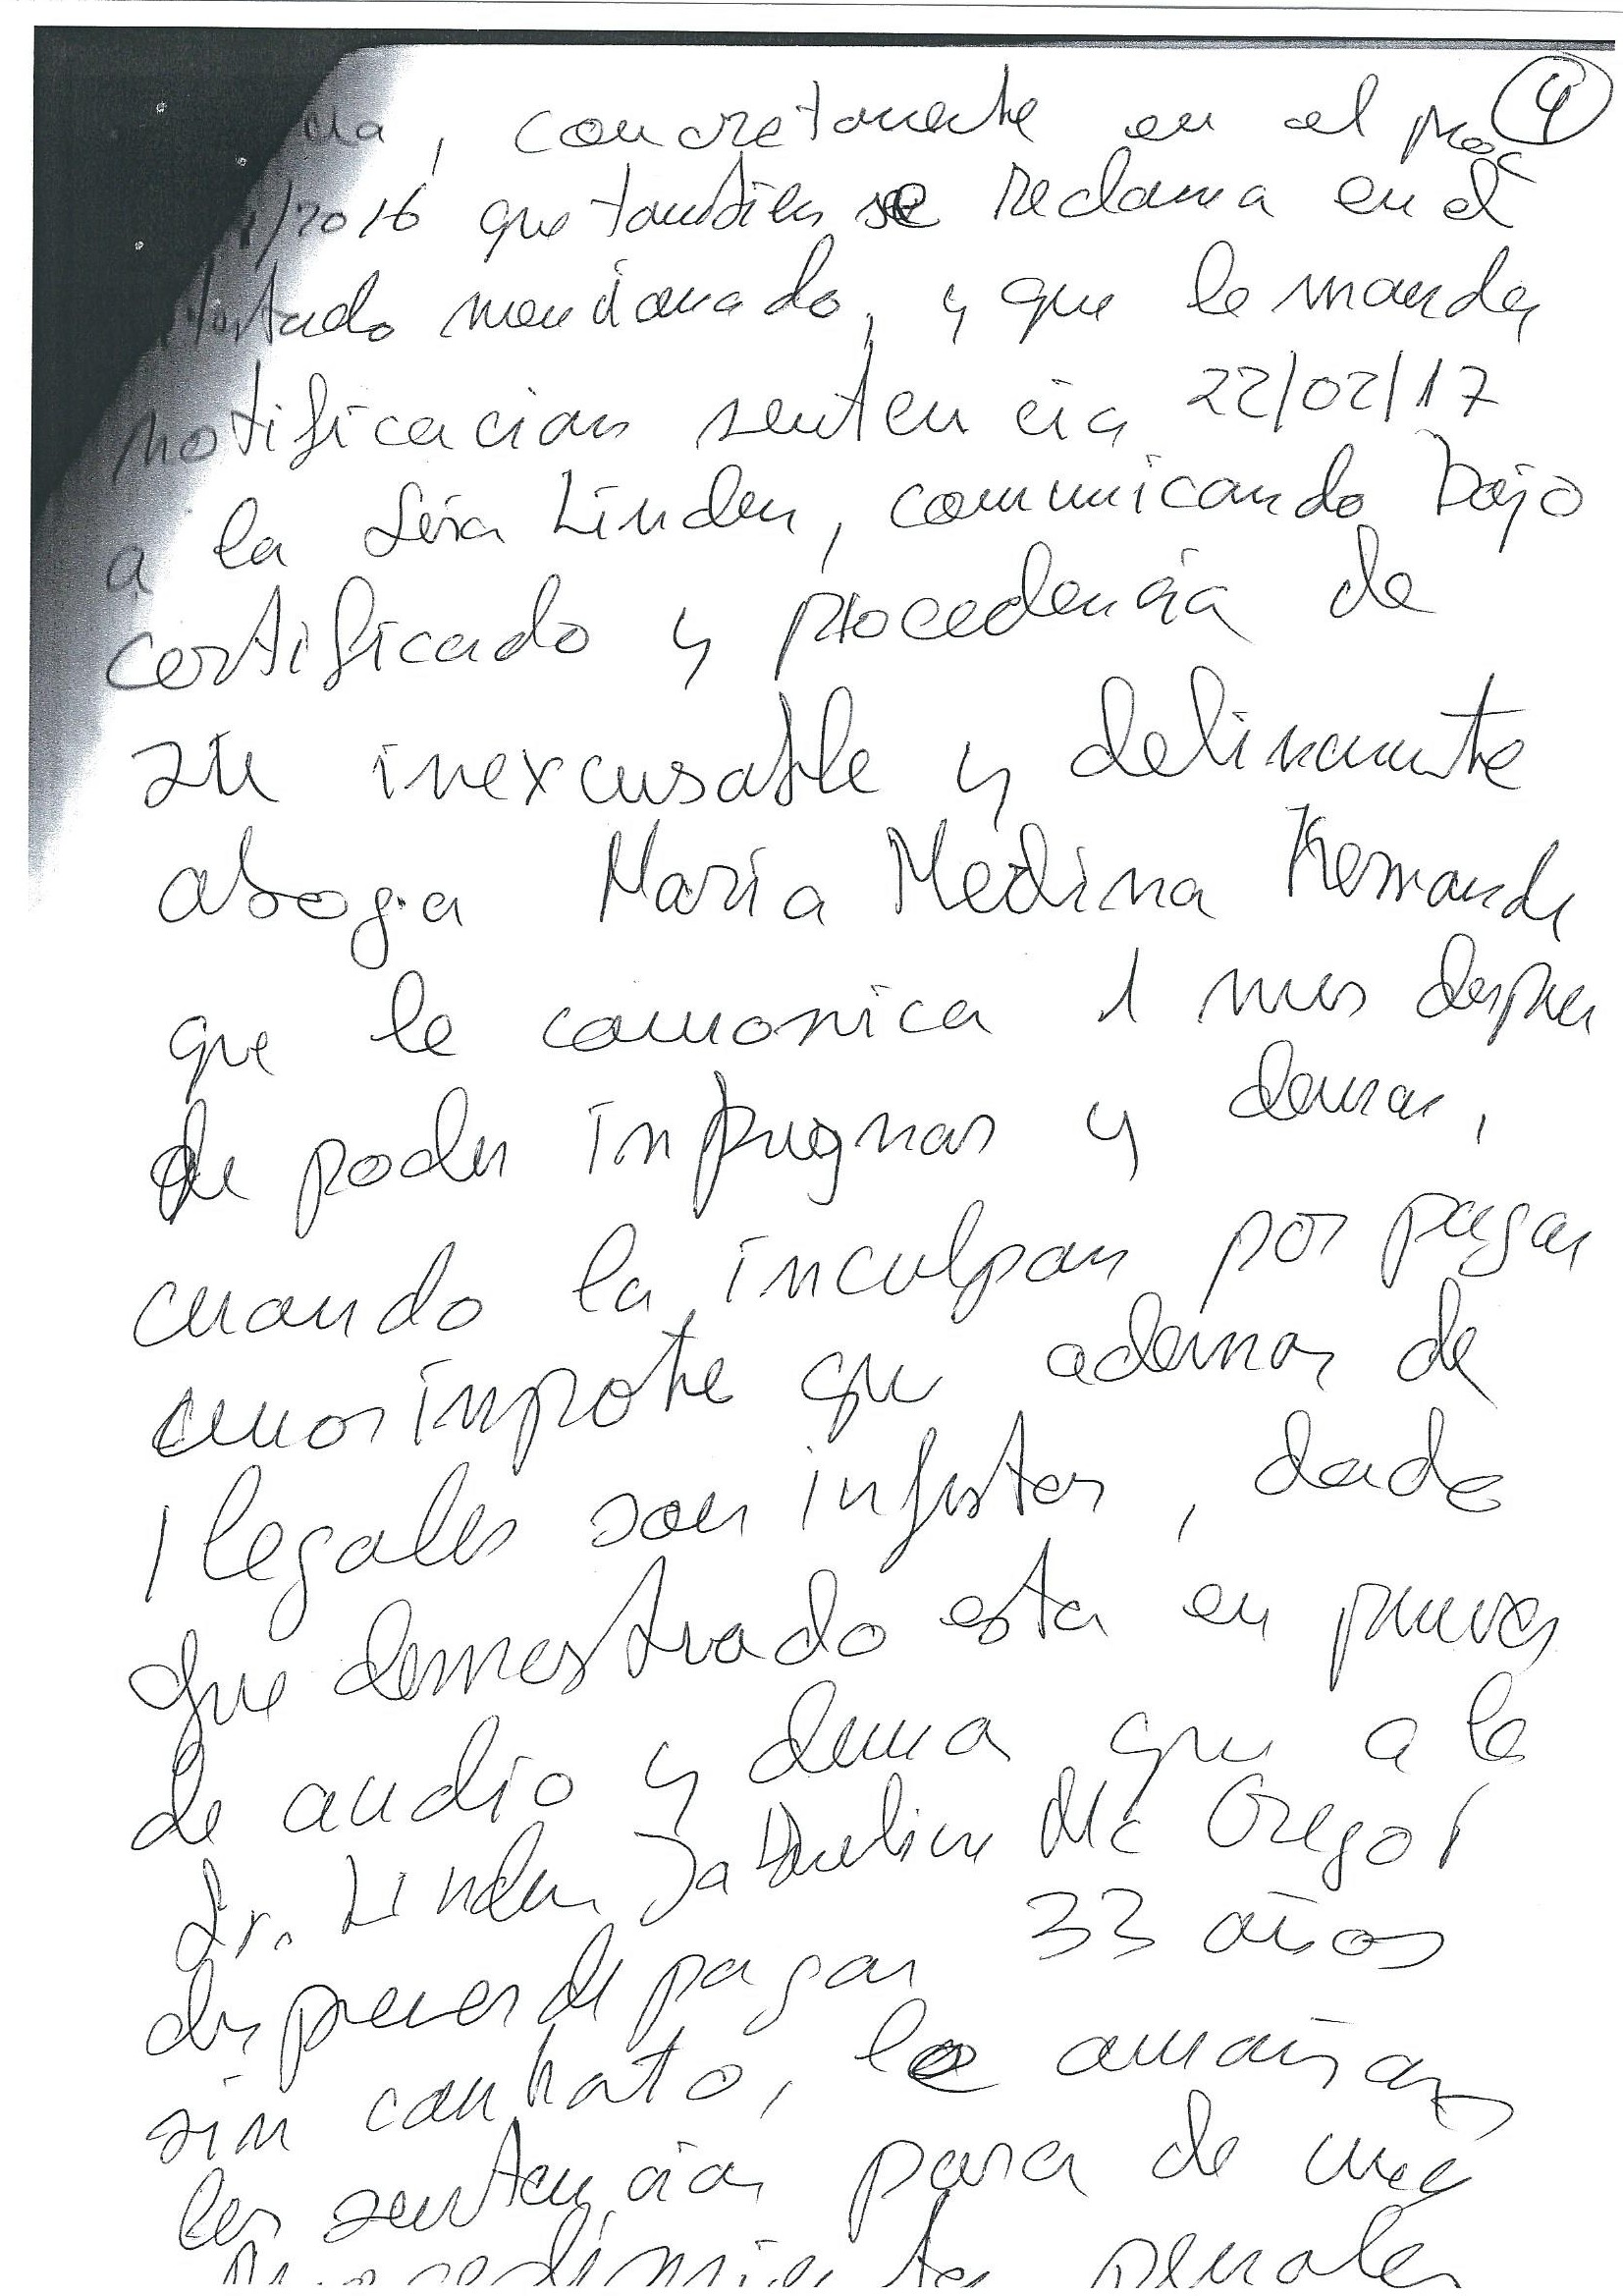 , concretamente en el proc 4
/2016 que tambien se reclama en el
mencionado, y que le manda
notificacion sentencia 22/02/17
a la Sra Linden, comunicando bajo
certificado y procedencia de
su inexcusable y delincuente
aboga Maria Medina Hernande
que le comonica 1 mes despues
de poder inpugnar y demas,
cuando la inculpan por pagar
unos inpote que ademas de
ilegales son injustos, dado
que demostrado esta en pruevas
de audio y dema que a la
Sr. Linden Mc Gregor
despues de pagar 33 años
sin contrato, le amañan
las sentencias para de una
penales